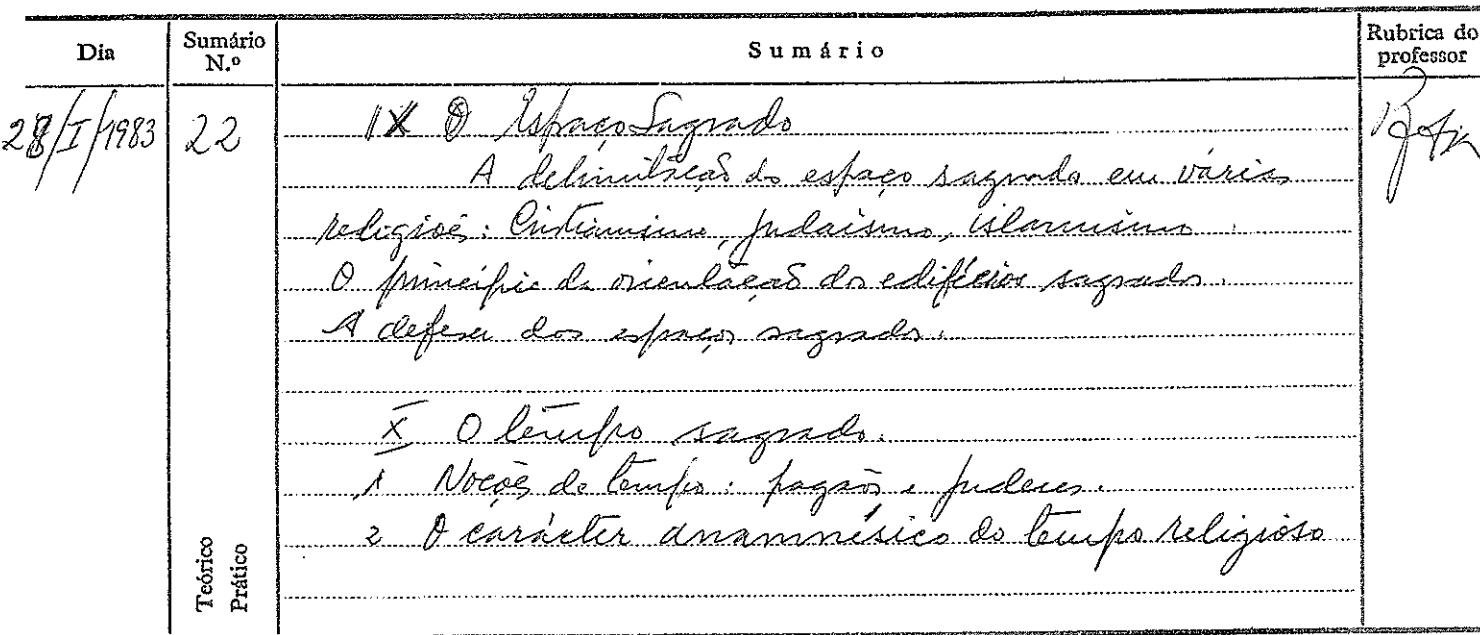 Dia Sumário N.º Sumário Rubrica do professor
28/I/1983 22 IX O Espaço Sagrado
A delimitação do espaço sagrado em várias
religiões: Cristianismo, judaismo, islamismo.
O princípio da orientação dos edifícios sagrados.
A defesa dos espaços sagrados.
X O tempo sagrado.
1 Noções de tempo: pagãos e judeus.
2 O carácter anamnésico do tempo religioso
Teórico
Prático